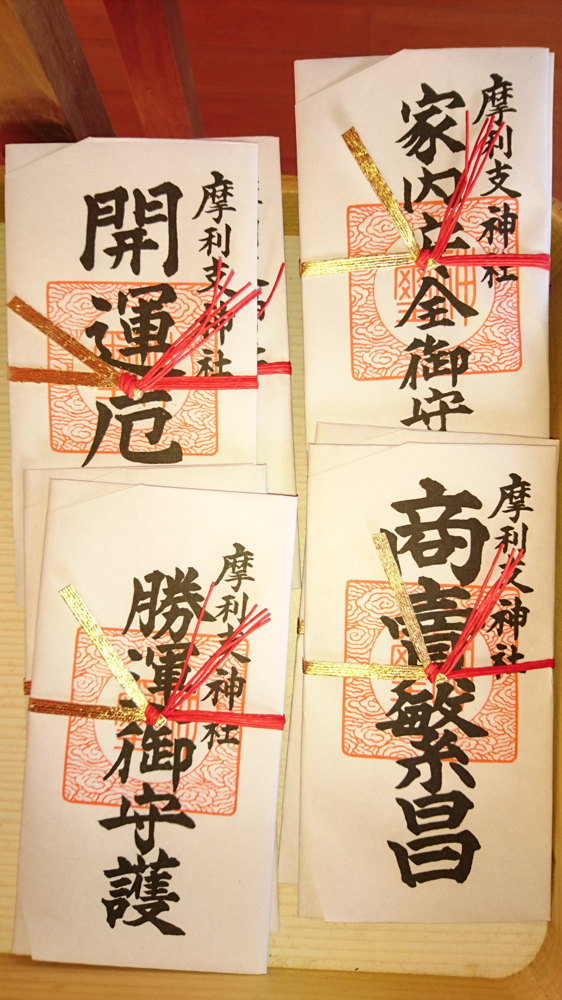 摩利支神社
家内安全御守
摩利支神社
開運厄
摩利支神社
商賣繁昌
摩利支神社
勝運御守護